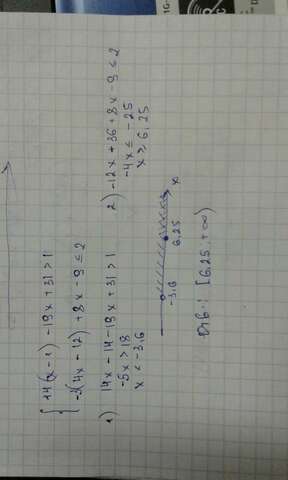 14(x-1) -19x +31 >1
-3(4x -12) +8x -9 ≤ 2
1) 14x -14 -19x +31 >1
-5x > 18
x < -3,6
2) -12x +36 +8x -9 ≤ 2
-4x ≤ -25
x ≥ 6,25
-3,6 6,25 x
Отв.: [6,25; +∞)